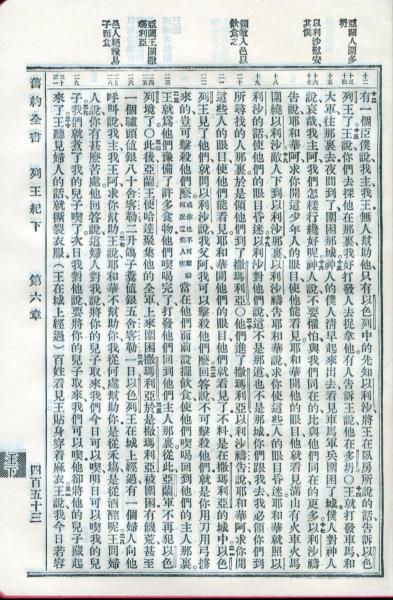 亞蘭人圍多坍
以利沙慰安其僕
領敵入邑以飲食之
亞蘭王圍撒瑪利亞
邑人絕糧易子而食
有一個臣僕說我主我王無人幫助他只有以色列中的先知以利沙將王在臥房所說的話告訴以色
列王了王說你們去探他在那裏我好打發人去捉拿他有人告訴王說他在多坍○王就打發車馬和
大軍往那裏去夜間到了圍困那城神人的僕人清早起來出去看見車馬軍兵圍困了城僕人對神人
說哀哉我主阿我們怎樣行纔好呢神人說不要懼怕與我們同在的比與他們同在的更多以利沙禱
告說耶和華阿求你開這少年人的眼目使他能看見耶和華開他的眼目他就看見滿山有火車火馬
圍繞以利沙敵人下到以利沙那裏以利沙禱告耶和華說求你使這些人的眼目昏迷耶和華就照以
利沙的話使他們的眼目昏迷以利沙對他們說這不是那道也不是那城你們跟我去我必領你們到
所尋找的人那裏於是領他們到了撒瑪利亞○他們進了撒瑪利亞以利沙禱告說耶和華阿求你開
這些人的眼目使他們能看見耶和華開他們的眼目他們就看見了不料是在撒瑪利亞的城中以色
列王見了他們就問以利沙說我父阿我可以擊殺他們麼回答說不可擊殺他們就是你用刀用弓擄
來的豈可擊殺他們麼當在他們面前擺飲食使他們喫喝回到他們的主人那裏
王就為他們豫備了許多食物他們喫喝完了打發他們回到他們主人那裏從此亞蘭軍不再犯以色
列境了○此後亞蘭王便哈達聚集他的全軍上來圍困撒瑪利亞於是撒瑪利亞被圍困有饑荒甚至
一個驢頭值銀八十舍客勒二升鴿子糞值銀五舍客勒一日以色列王在城上經過有一個婦人向他
呼叫說我主我王阿求你幫助王說耶和華不幫助你我從何處幫助你是從禾場是從酒醡呢王問婦
人說你有甚麼苦處他回答說這婦人對我說將你的兒子取來我們今日可以喫明日可以喫我的兒
子我們就煮了我的兒子喫了次日我對他說要將你的兒子取來我們可以喫他卻將他的兒子藏起
來了王聽見婦人的話就撕裂衣服（王在城上經過）百姓看見王貼身穿着麻衣王說我今日若容
舊約全書　列王紀下　第六章　四百五十三